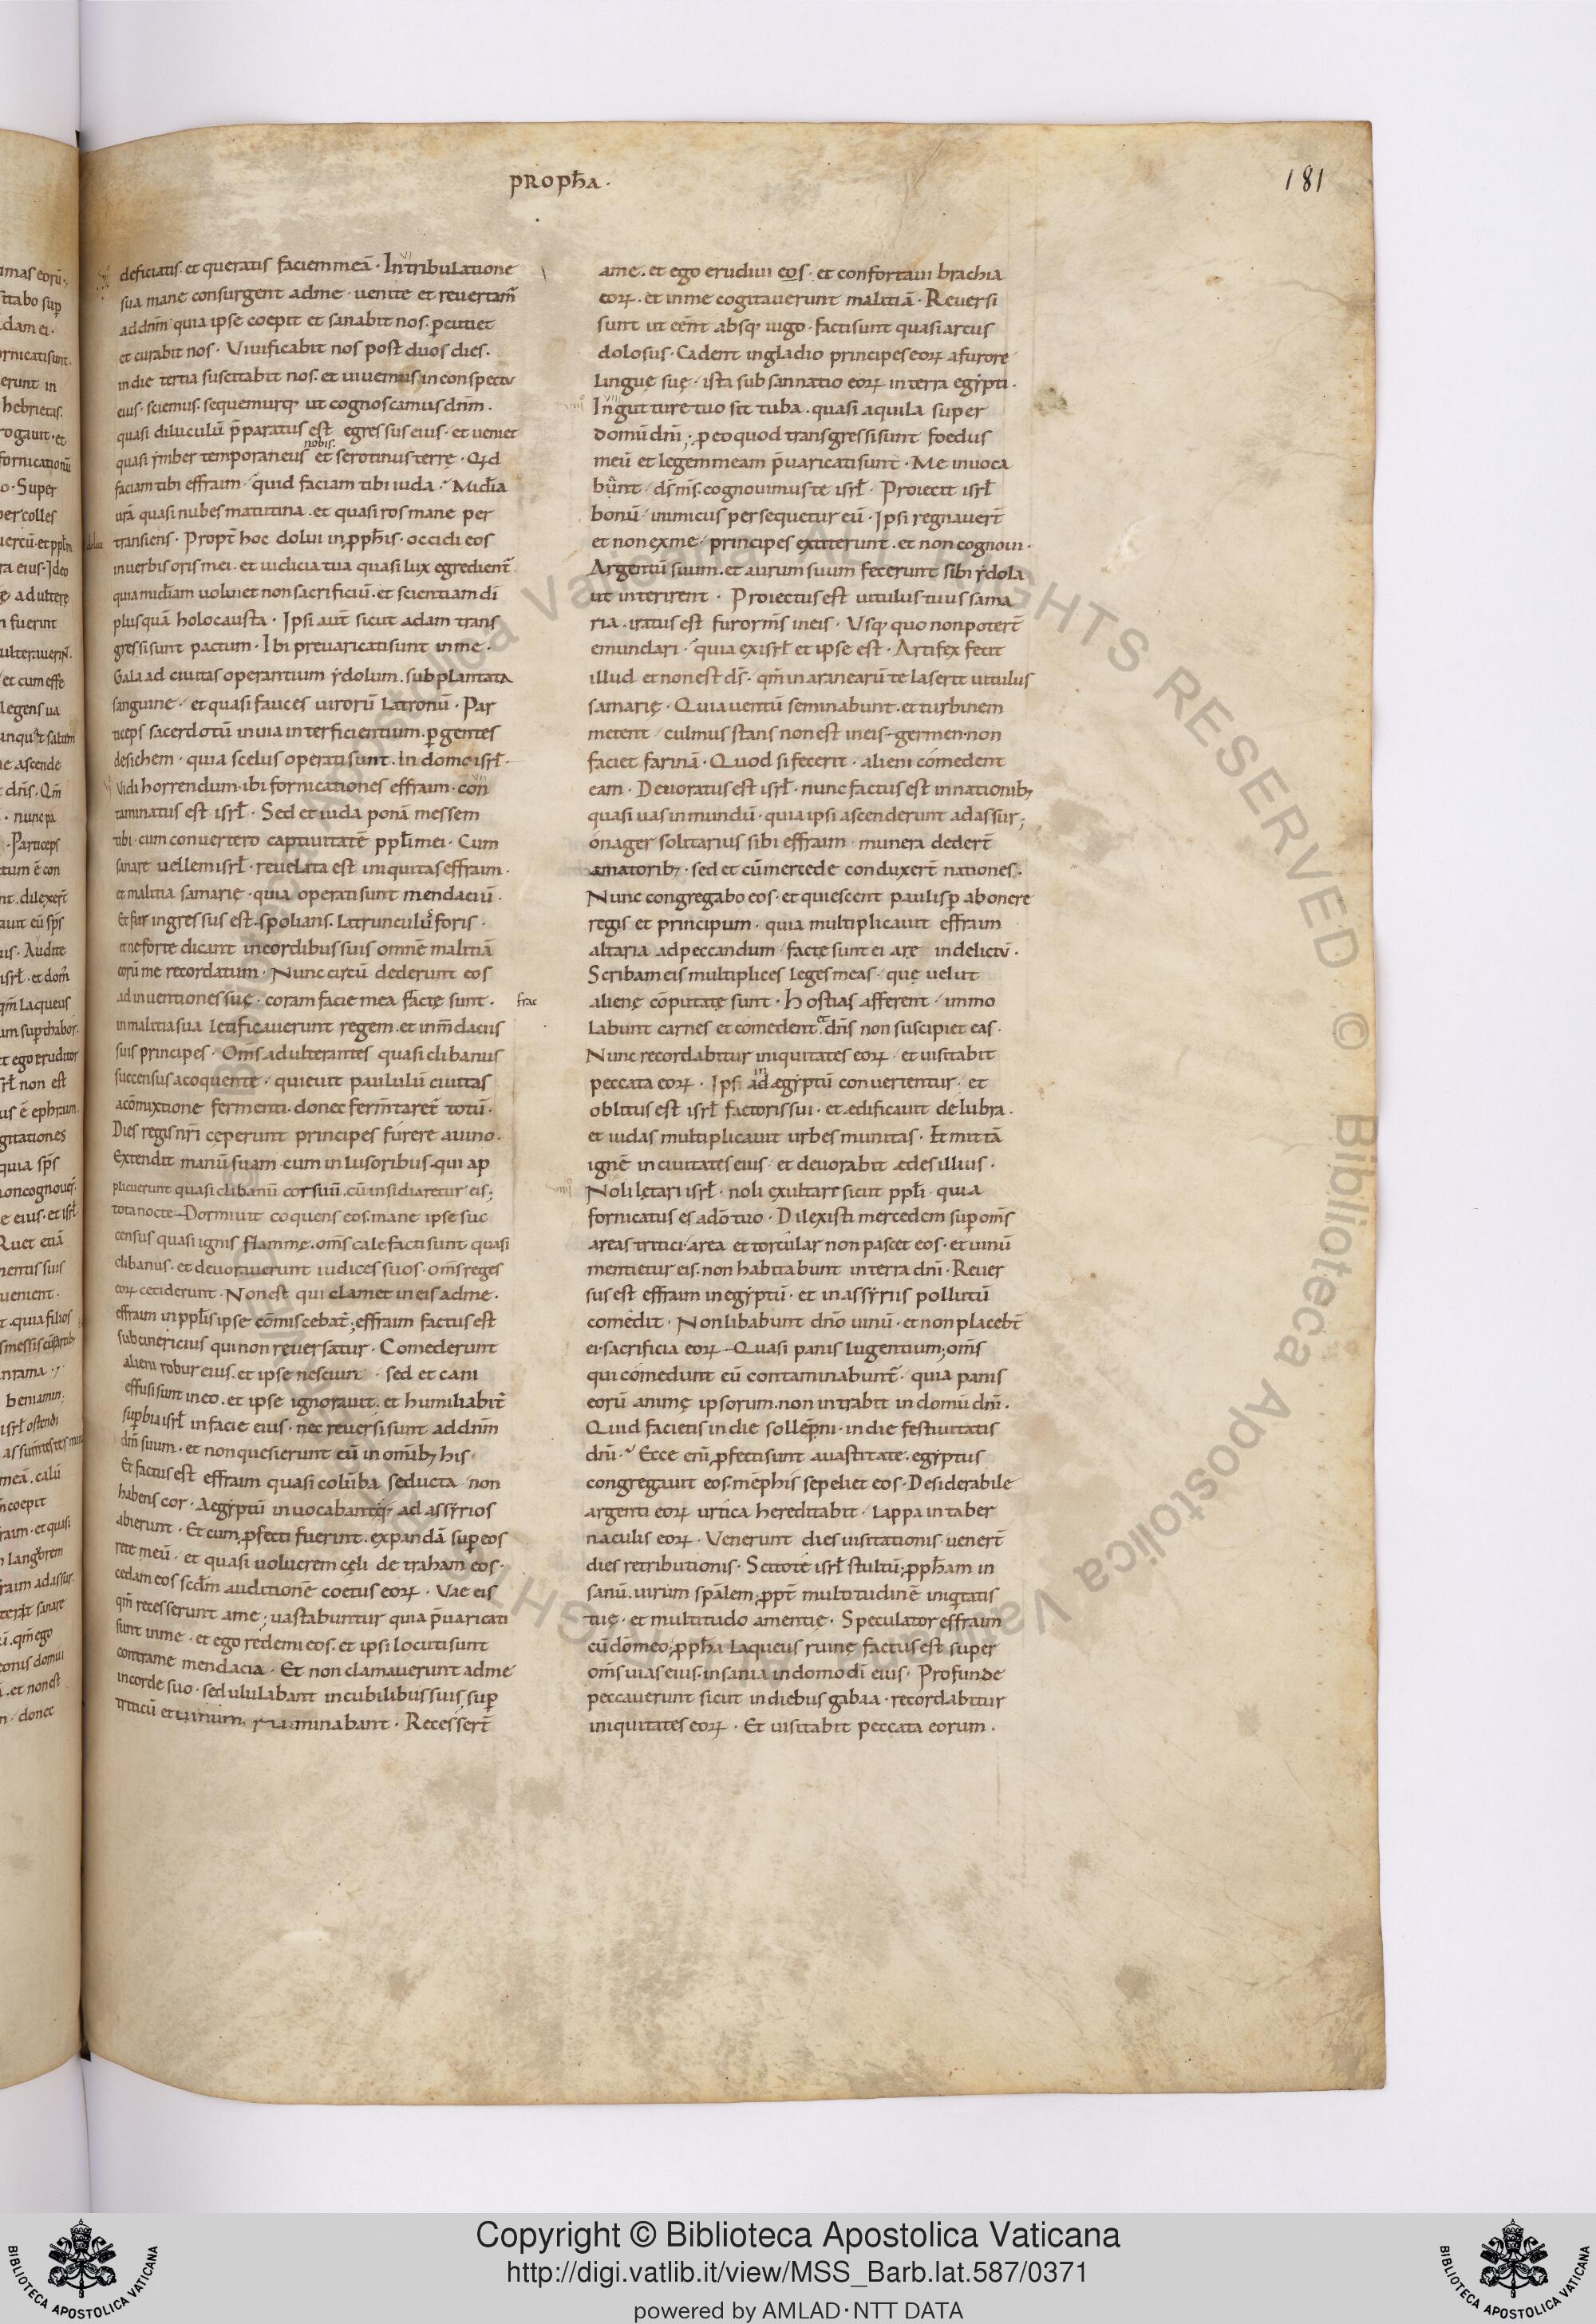 PROPħA·
181
deficiatis. et queratis faciem meā · In tribulatione
sua mane consurgent ad me · uenite et reuertam̄
ad dnm̄ quia ipse coepit et sanabit nos. ꝑcutiet
et curabit nos · Viuificabit nos post duos dies.
in die tertia suscitabit nos. et uiuemus in conspectu
eius. sciemus. sequemurq; ut cognoscamus dnm̄.
quasi diluculū p̄paratus est egressus eius · et ueniet
nobis.
quasi ymber temporaneus et serotinus terrę · Qd
faciam tibi effraim · quid faciam tibi iuda · Miđia
urā quasi nubes matutina. et quasi ros mane per
transiens · Propt̄ hoc dolui in ꝓpħis · occidi eos
in uerbis oris mei. et iudicia tua quasi lux egredient̄.
quia miđiam uolui et non sacrificiū. et scientiam dī
plusquā holocausta · Ipsi aut̄ sicut adam trans
gressi sunt pactum · Ibi preuaricati sunt in me ·
Galaad ciuitas operantium ydolum. subplantata
sanguine · et quasi fauces uirorū latronū · Par
ticeps sacerdotū in uia interficientium. ꝑgentes
de sichem · quia scelus operati sunt. In domo isrł ·
Vidi horrendum. ibi fornicationes effraim · con
taminatus est isrł · Sed et iuda ponā messem
tibi · cum conuertero captiuitatē ppłi mei · Cum
sanare uellem isrł · reuelata est iniquitas effraim ·
et malitia samarię · quia operati sunt mendaciū ·
Et fur ingressus est. spolians. latrunculus foris ·
et ne forte dicant in cordibus suis omnē malitiā
eorū me recordatum · Nunc circū dederunt eos
ad inuentiones suę · coram facie mea factę sunt ·
in malitia sua lętificauerunt regem. et in m̄daciis
suis principes · Om̄s adulterantes quasi clibanus
succensus a coquente · quieuit paululū ciuitas
a cōmixtione fermenti. donec ferm̄taret̄ totū ·
Dies regis nr̄i cęperunt principes furere a uino ·
Extendit manū suam cum inlusoribus. qui ap
plicuerunt quasi clibanū cor suū. cū insidiaretur eis;
tota nocte Dormiuit coquens eos. mane ipse suc
census quasi ignis flammę. om̄s calefacti sunt quasi
clibanus · et deuorauerunt iudices suos · om̄s reges
eorꝝ ceciderunt · Non est qui clamet in eis ad me ·
effraim in ppłis ipse cōmiscebat̄; effraim factus est
subcinericius qui non reuersatur · Comederunt
alieni robur eius. et ipse nesciuit · sed et cani
effusi sunt in eo. et ipse ignorauit. et humiliabit̄
supbia isrł in facie eius · nec reuersi sunt ad dnm̄
dm̄ suum. et non quesierunt eū in omīb; his ·
Et factus est effraim quasi colūba seducta non
habens cor · Aegyptū inuocabant ad assyrios
abierunt · Et cum ꝓfecti fuerint. expandā sup eos
rete meū · et quasi uolucrem cęli detraham eos ·
cędam eos scđm auditionē coetus eorꝝ · Vae eis
qm̄ recesserunt a me; uastabuntur quia p̄uaricati
sunt in me · et ego redemi eos. et ipsi locuti sunt
contra me mendacia · Et non clamauerunt ad me
in corde suo · sed ululabant in cubilibus suis; sup
triticū et uinum ruminabant · Recesser̄t
a me. et ego erudiui eos · et confortaui brachia
eorꝝ. et in me cogitauerunt malitiā · Reuersi
sunt ut eēnt absq; iugo · facti sunt quasi arcus
dolosus · Cadent in gladio principes eorꝝ a furore
linguę suę · ista subsannatio eorꝝ in terra egypti ·
In gutture tuo sit tuba. quasi aquila super
domū dnī; ꝓ eo quod transgressi sunt foedus
meū et legem meam p̄uaricati sunt · Me inuoca
bunt · ds̄ ms̄. cognouimus te isrł · Proiecit isrł
bonū · inimicus persequetur eū · Ipsi regnauer̄t
et non ex me · principes extiterunt. et non cognoui ·
Argentū suum. et aurum suum fecerunt sibi ydola
ut interirent · Proiectus est uitulus tuus sama
ria. iratus est furor m̄s in eis · Vsq; quo non poter̄t
emundari · quia ex isrł et ipse est · Artifex fecit
illud et non est ds̄ · qm̄ in aranearū telas erit uitulus
samarię · Quia uentū seminabunt. et turbinem
metent · culmus stans non est in eis. germen non
faciet farinā · Quod si fecerit · alieni comedent
eam · Deuoratus est isrł · nunc factus est in nationib;
quasi uas inmundū · quia ipsi ascenderunt ad assur;
onager solitarius sibi effraim munera deder̄t
amatorib; · sed et cū mercede conduxer̄t nationes ·
Nunc congregabo eos · et quiescent paulisꝑ ab onere
regis et principum · quia multiplicauit effraim
altaria ad peccandum · factę sunt ei arę in delictū ·
Scribam eis multiplices leges meas · quę uelut
alienę cōputatę sunt · Hostias afferent · immo
labunt carnes et comedent. et dn̄s non suscipiet eas ·
Nunc recordabitur iniquitates eorꝝ · et uisitabit
peccata eorꝝ · Ipsi in ad ægyptū conuertentur · et
oblitus est isrł factoris sui · et ædificauit delubra ·
et iudas multiplicauit urbes munitas · Et mittā
ignē in ciuitates eius · et deuorabit ædes illius ·
Noli lętari isrł · noli exultare sicut ppłi · quia
fornicatus es a dō tuo · Dilexisti mercedem sup om̄s
areas tritici · area et torcular non pascet eos · et uinū
mentietur eis. non habitabunt in terra dnī · Reuer
sus est effraim in egyptū · et in assyriis pollutū
comedit · Non libabunt dnō uinū · et non placebt̄
ei. sacrificia eorꝝ Quasi panis lugentium; om̄s
qui comedunt eū contaminabunt̄ · quia panis
eorū animę ipsorum. non intrabit in domū dnī ·
Quid facietis in die sollēpni · in die festiuitatis
dnī · Ecce enī ꝓfecti sunt a uastitate. egyptus
congregauit eos. mēphis sepeliet eos · Desiderabile
argenti eorꝝ urtica hereditabit · lappa in taber
naculis eorꝝ · Venerunt dies uisitationis · uener̄t
dies retributionis · Scitote isrł stultū; ꝓpħam in
sanū. uirum spālem; ꝓpt̄ multitudinē iniqitatis
tuę · et multitudo amentię · Speculator effraim
cū dō meo; ꝓpħa laqueus ruinę factus est super
om̄s uias eius. insania in domo dī eius · Profunde
peccauerunt sicut in diebus gabaa · recordabitur
iniquitates eorꝝ · Et uisitabit peccata eorum ·
Copyright © Biblioteca Apostolica Vaticana
http://digi.vatlib.it/view/MSS_Barb.lat.587/0371
powered by AMLAD·NTT DATA
BIBLIOTECA APOSTOLICA VATICANA
BIBLIOTECA APOSTOLICA VATICANA